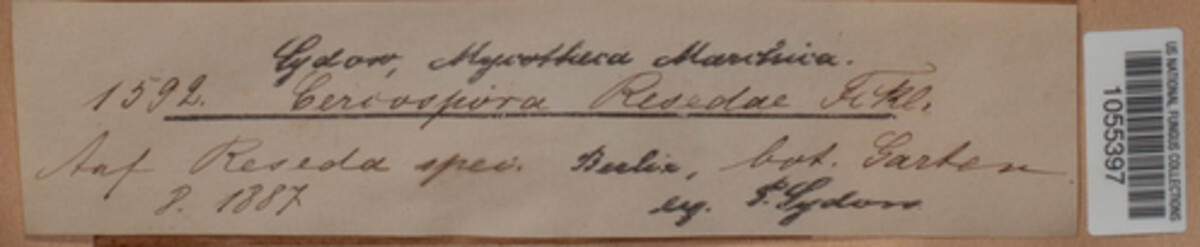 Sydow, Mycotheca Marchica.
1592. Cercospora Resedae Fckl.
Auf Reseda spec. Berlin, bot. Garten
8. 1887 leg. P. Sydow
US NATIONAL FUNGUS COLLECTIONS
1055397